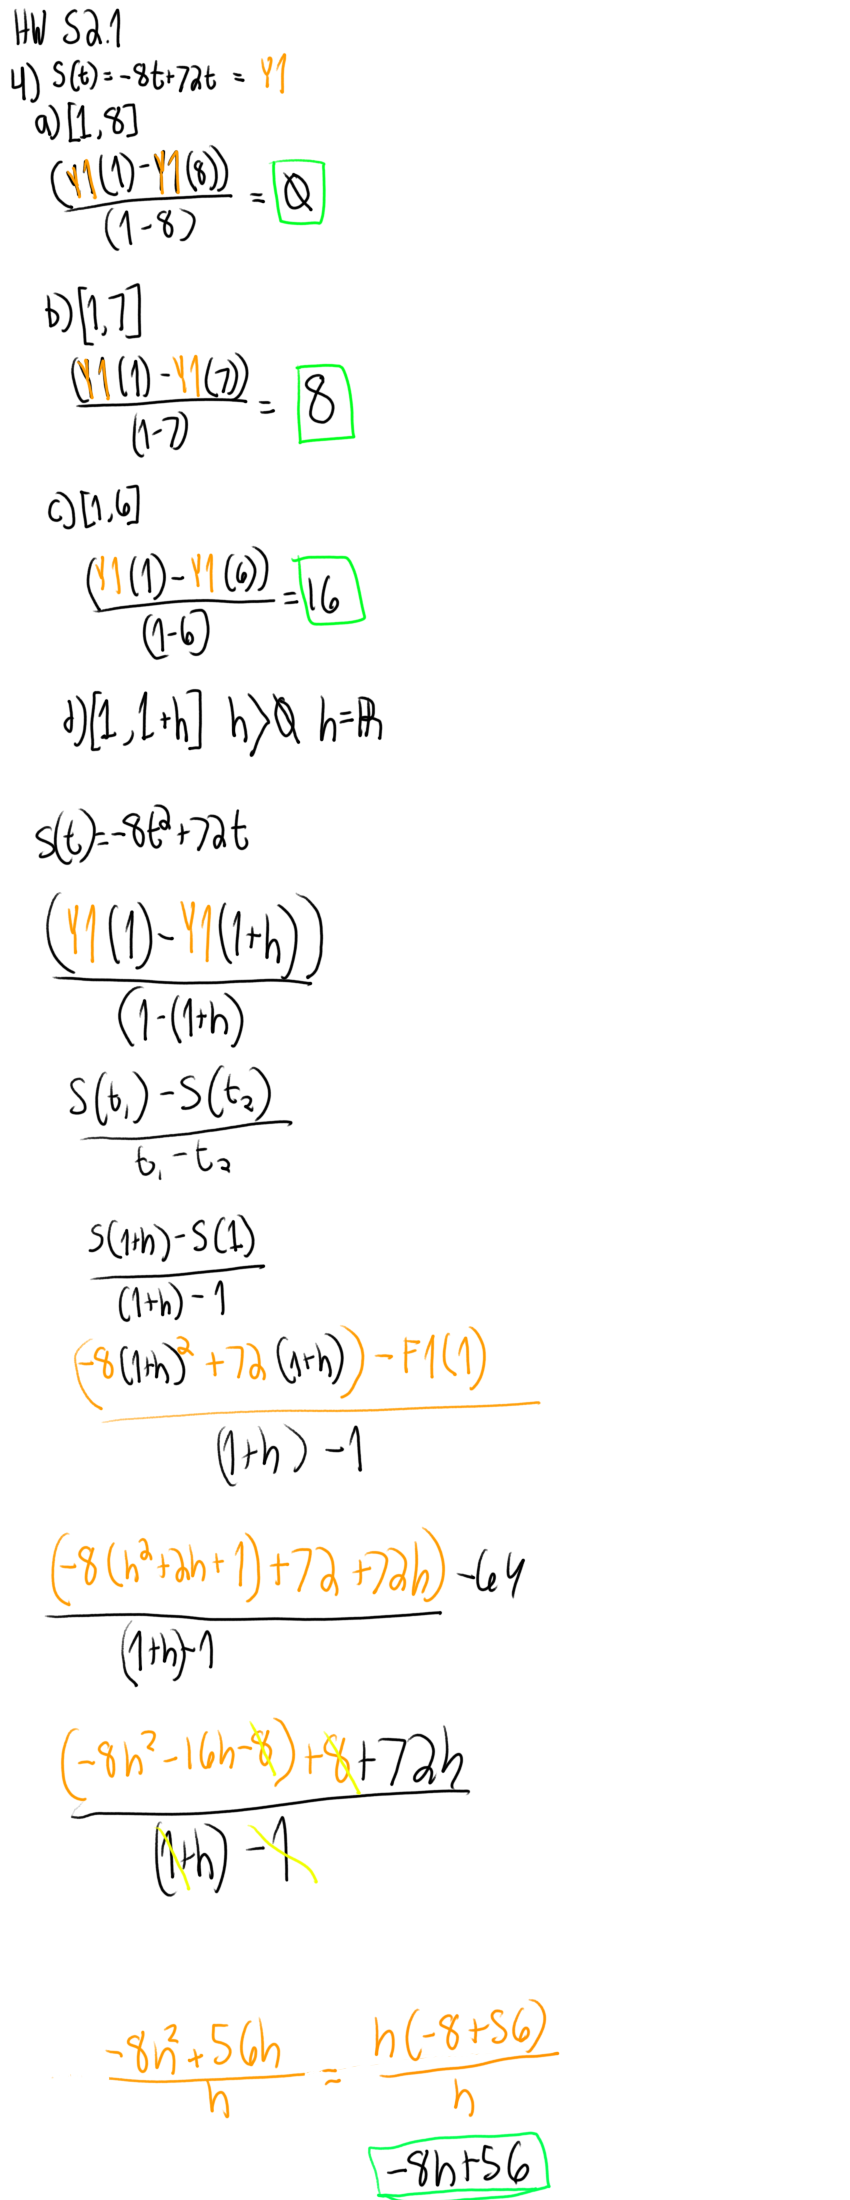 HW S2.1
4) S(t)=-8t+72t = Y1
a)[1,8]
(Y1(1)-Y1(8))
(1-8)
= 0
b)[1,7]
(Y1(1)-Y1(7))
(1-7)
= 8
c)[1,6]
(Y1(1)-Y1(6))
(1-6)
= 16
d)[1,1+h] h>0 h=
s(t)=-8t²+72t
(Y1(1)-Y1(1+h))
(1-(1+h)
S(t₁)-S(t₂)
t₁-t₂
S(1+h)-S(1)
(1+h)-1
(-8(1+h)²+72(1+h))-F1(1)
(1+h)-1
(-8(h²+2h+1)+72+72h)-64
(1+h)-1
(-8h²-16h-8)+8+72h
(1+h)-1
-8h²+56h
h
=
h(-8+56)
h
-8h+56